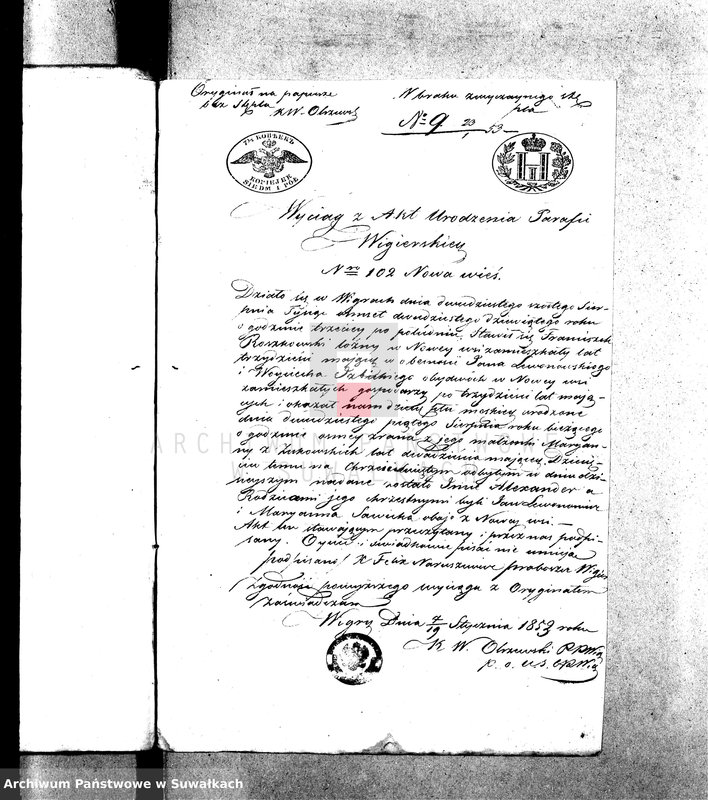 Oryginał na papierze
bez stępla
X W. Obrzewski
W braku zwyczaynego stę
pla
No 9 20/1 53
7½ КОПѢЕКЪ
KOPIEJEK
SIEDM I PÓŁ
Wyciąg z Akt Urodzenia Parafii
Wigierskiey
Nro 102 Nowa wieś.
Działo się w Wigrach dnia dwudziestego szóstego Sier-
pnia Tysiąc ośmset dwudziestego dziewiątego roku
o godzinie trzeciey po południu, Stawił się Franciszek
Roszkowski w Nowey wsi zamieszkały lat
trzydzieści maiący w obecności Jana Lewonowskiego
i Woyciecha Izbickiego obydwóch w Nowey wsi
zamieszkałych gospodarzy po trzydzieści lat maią-
cych i okazał nam dziecię płci męskiey urodzone
dnia dwudziestego piątego Sierpnia roku bieżącego
o godzinie ósmey zrana z jego małżonki Maryan-
ny z Łukowskich lat dwadzieścia maiącey. Dziecię-
ciu temu na Chrzcie świętym odbytym w dniu dzi-
sieyszym nadane zostało Imie Alexander a
Rodzicami jego chrzestnymi byli Jan Lewonowicz
i Maryanna Sawicka oboje z Nowey wsi. —
Akt ten stawającym przeczytany i przez nas podpi-
sany. Oyciec i świadkowie pisać nie umieją
podpisano / X Felix Naruszewicz proboszcz Wigier
Zgodność powyższego wyciągu z Oryginałem
zaświadczam
Wigry Dnia 7/19 Stycznia 1853 roku
X W. Obrzewski
p. o. U. S. C.
ARCHIWUM PAŃSTWOWE
W SUWAŁKACH
Archiwum Państwowe w Suwałkach